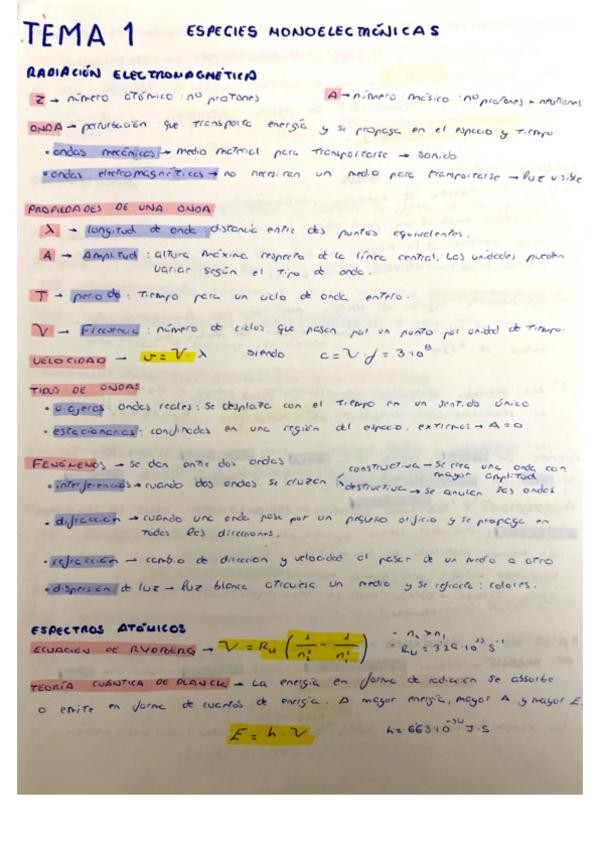 TEMA 1 ESPECIES MONOELECTRÓNICAS
RADIACIÓN ELECTROMAGNÉTICA
Z → número atómico: nº protones A → número másico: nº protones + neutrones
ONDA → perturbación que transporta energía y se propaga en el espacio y tiempo.
• ondas mecánicas → medio material para transportarse → sonido
• ondas electromagnéticas → no necesitan un medio para transportarse → luz visible
PROPIEDADES DE UNA ONDA
λ → longitud de onda: distancia entre dos puntos equivalentes.
A → Amplitud: altura máxima respecto de la línea central. Las unidades pueden
variar según el tipo de onda.
T → periodo: tiempo para un ciclo de onda entero.
V → Frecuencia: número de ciclos que pasan por un punto por unidad de tiempo.
VELOCIDAD → v = V · λ siendo c = V · f = 3·10⁸
TIPOS DE ONDAS
• viajeras: ondas reales: se desplaza con el tiempo en un sentido único
• estacionarias: confinadas en una región del espacio. extremos → A=0
FENÓMENOS → se dan entre dos ondas
constructiva → se crea una onda con
mayor amplitud
• interferencias → cuando dos ondas se cruzan
destructiva → se anulan las ondas
• difracción → cuando una onda pasa por un pequeño orificio y se propaga en
todas las direcciones.
• refracción → cambio de dirección y velocidad al pasar de un medio a otro
• dispersión de luz → luz blanca atraviesa un medio y se refracta: colores.
ESPECTROS ATÓMICOS
ECUACIÓN DE RYDBERG → V = R_H (1/n₂² - 1/n₁²) - n₂ > n₁
R_H = 3'29·10¹⁵ s⁻¹
TEORÍA CUÁNTICA DE PLANCK → La energía en forma de radiación se absorbe
o emite en forma de cuantos de energía. A mayor energía, mayor A y mayor E.
E = h · V h = 6'63·10⁻³⁴ J·s